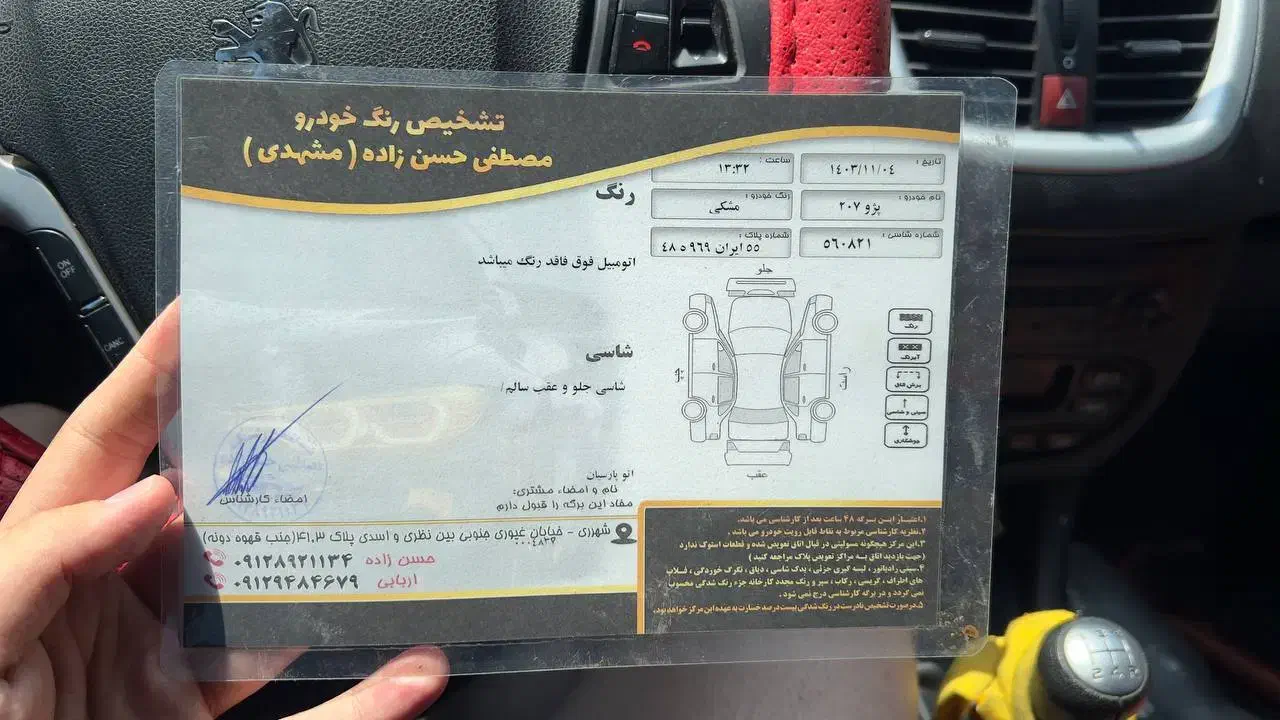 تشخیص رنگ خودرو
مصطفی حسن زاده ( مشهدی )
تاریخ : ۱٤۰۳/۱۱/۰٤
ساعت : ۱۳:۳۲
نام خودرو : پژو ۲۰۷
رنگ خودرو : مشکی
شماره شاسی : ۵۶۰۸۲۱
شماره پلاک : ۵۵ ایران ۹۶۹ ه ٤۸
رنگ
اتومبیل فوق فاقد رنگ میباشد
شاسی
شاسی جلو و عقب سالم/
جلو
چپ
راست
عقب
رنگ
آبرنگ
برش اتاق
سینی و شاسی
جوشکاری
امضاء کارشناس
اتو پارسیان
نام و امضاء مشتری:
مفاد این برگه را قبول دارم
شهرری - خیابان غیوری جنوبی بین نظری و اسدی پلاک ۴۱.۳(جنب قهوه دونه)
حسن زاده ۰۹۱۲۸۹۲۱۱۳۴
اربابی ۰۹۱۲۹۴۸۴۶۷۹
۱.اعتبار این برگه ۴۸ ساعت بعد از کارشناسی می باشد.
۲.نظریه کارشناسی مربوط به نقاط قابل رویت خودرو می باشد .
۳.این مرکز هیچگونه مسولیتی در قبال اتاق تعویض شده و قطعات استوک ندارد
(جهت بازدید اتاق به مراکز تعویض پلاک مراجعه کنید )
۴.سینی رادیاتور ، لیسه گیری جزئی ، یدک شاسی ، دیاق ، تگرگ خوردگی ، قلاب
های اطراف ، گریسی ، رکاب ، سپر و رنگ مجدد کارخانه جزء رنگ شدگی محسوب
نمی گردد و در برگه کارشناسی درج نمی شود .
۵.در صورت تشخیص نادرست در رنگ شدگی بیست درصد خسارت به عهده این مرکز خواهد بود.
ON
OFF
CANC